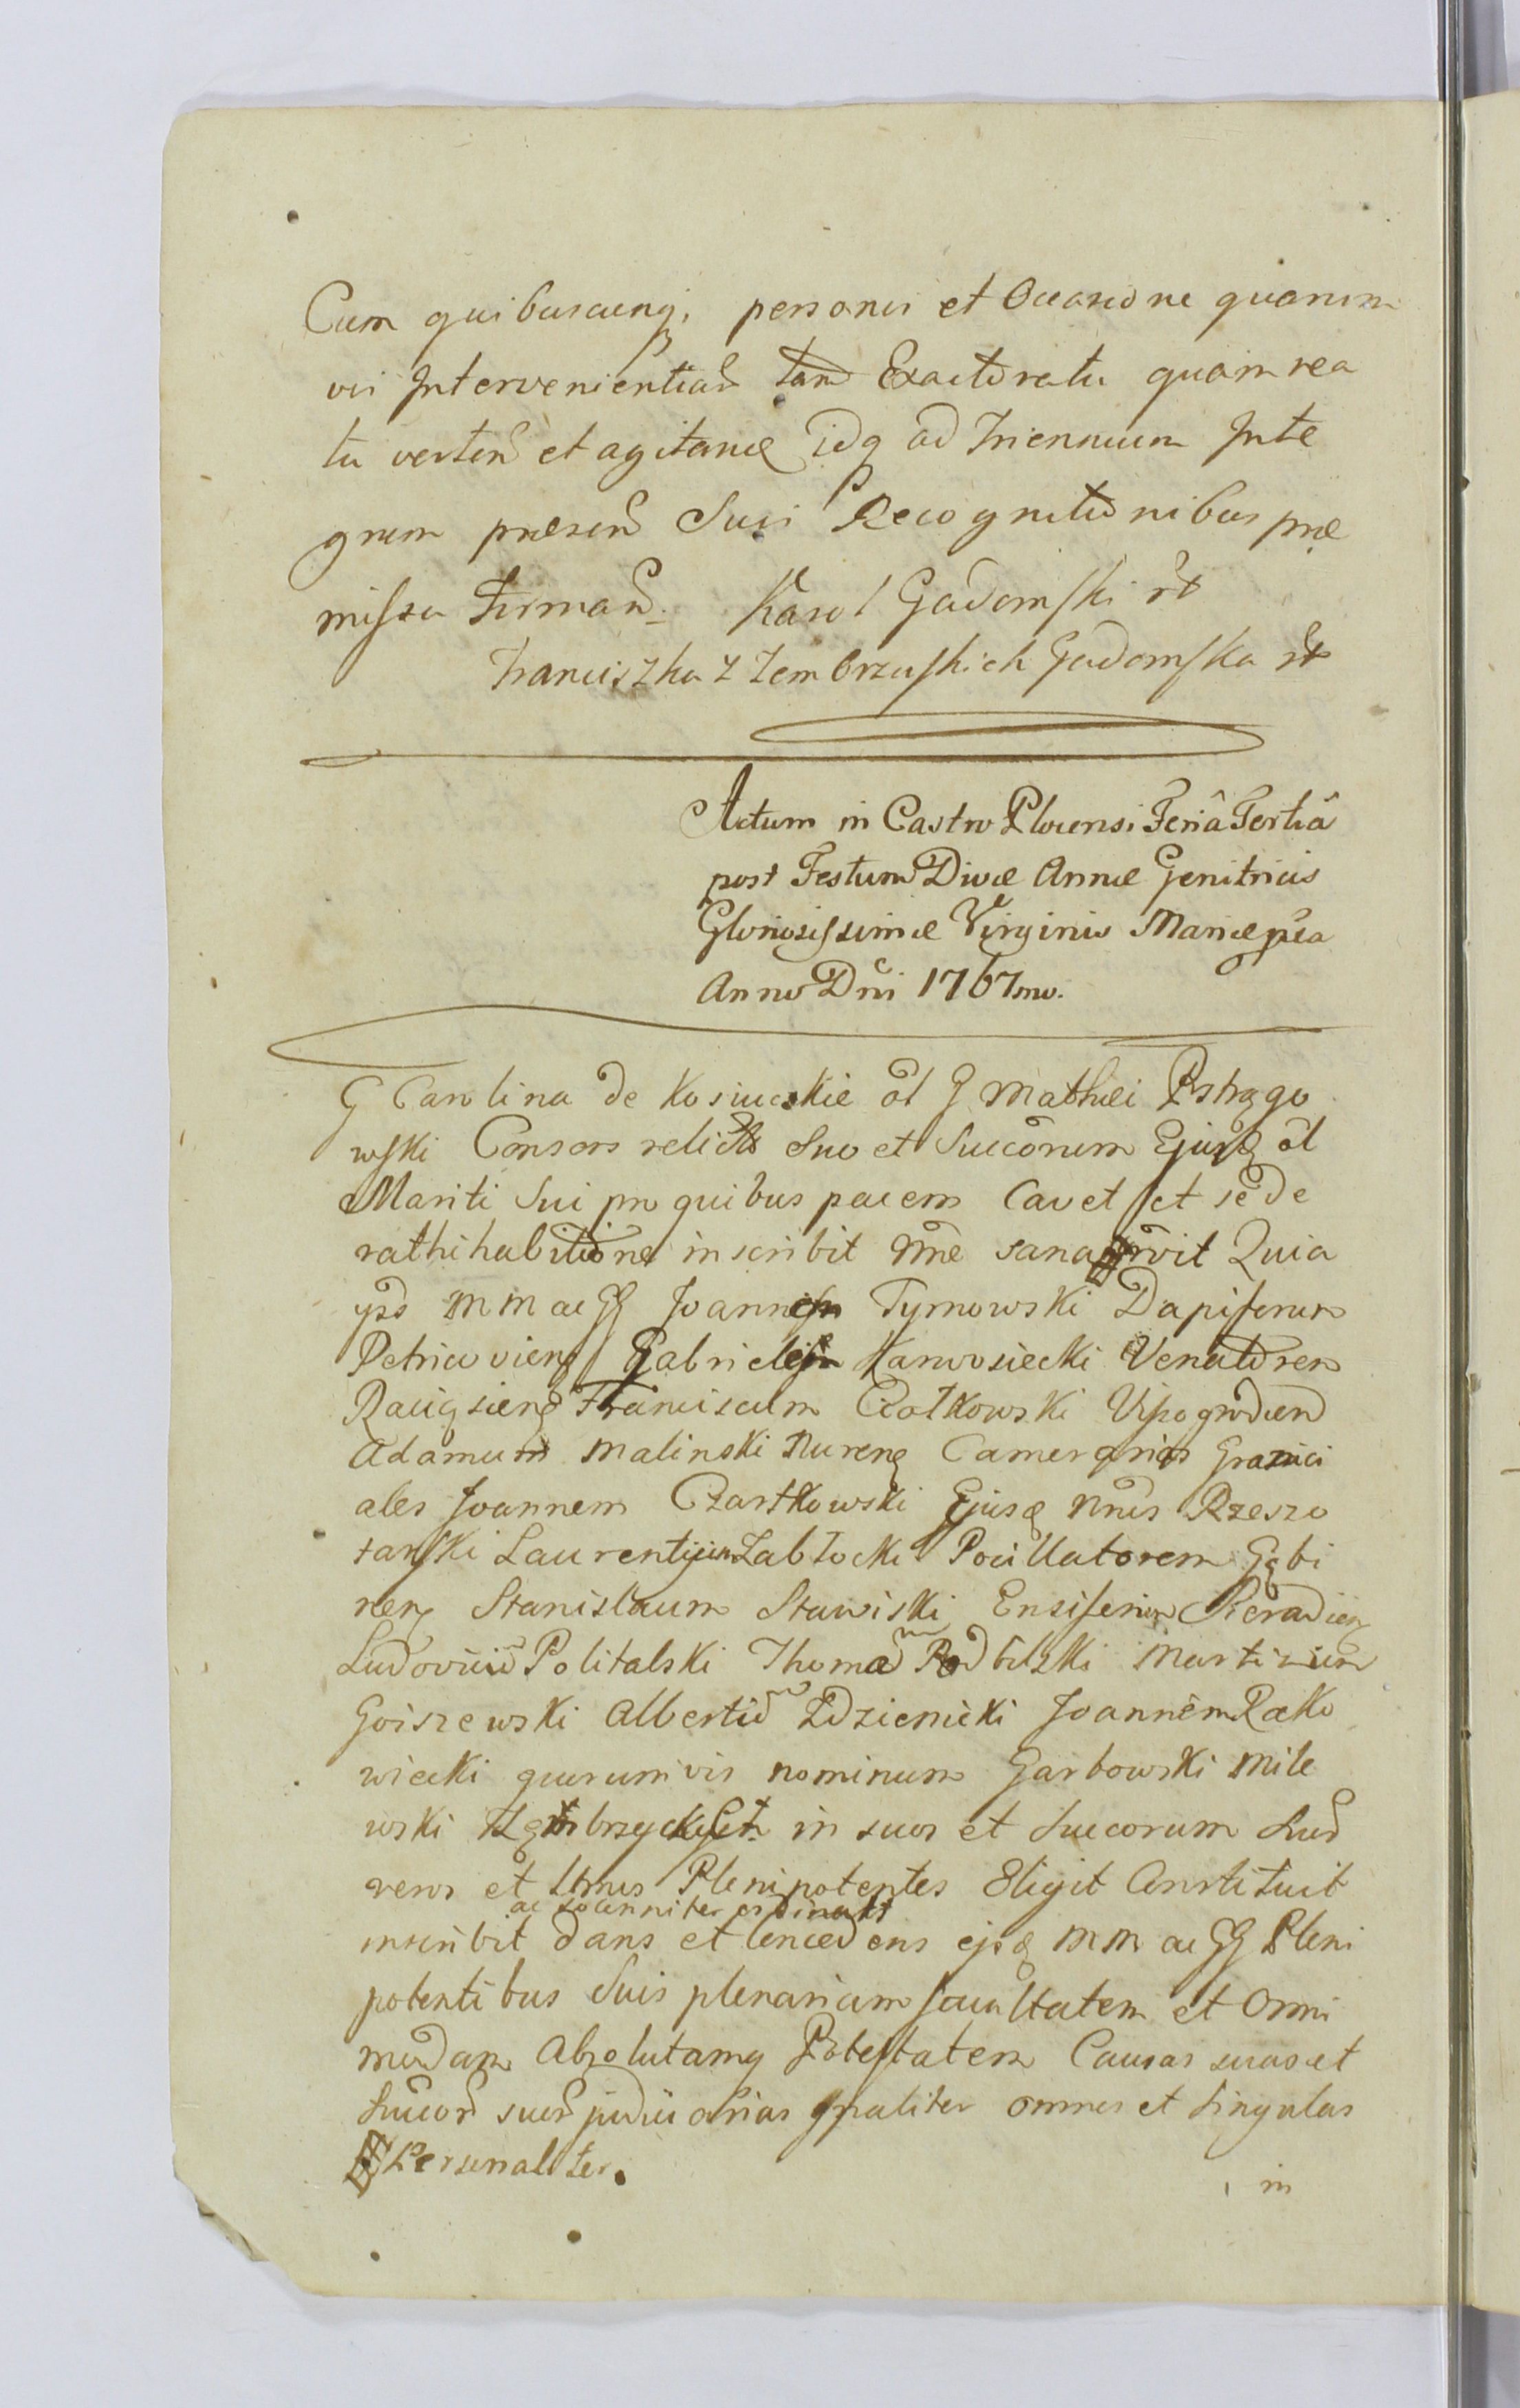 Cum quibuscunq; personis et Occasione quarum
vis Intervenientian tam Exactoratu quam rea
tu verten et agitanđ idq ad Triennium Inte
grum præsen Suis Recognitionibus præ
missa firman. Karol Gadomski
Franciszka z Zembrzuskich Gadomska
Actum in Castro Plocensi Feriâ Tertiâ
post Festum Divæ Annæ Genitricis
Gloriosissimæ Virginis Mariæ pxa
Anno Dni 1767mo.
G Carolina de Kosiucskie ol G Mathæi Pstrągo
wski Consors relicta Suo et Succonum Ejusq ol
Mariti Sui pro quibus pacem Cavet et se de
rathihabitione inscribit nne sana rvit Quia
ypsa MM ac GG Joannem Tymowski Dapiferum
Petricovienq Gabrielem Karwosiecki Venatorem
Raciąsienq Franciscum Ciotkowski Wyszogrodien
Adamum Malinski Nurenq Camerarios Granici
ales Joannem Czartkowski Ejusq nnis Rzeszo
tarski Laurentium Zabłocki Pocillatorem Gębi
nenq Stanislaum Stawiski Ensiferum Sieradienq
Ludovicu Politalski Thomam Podbilski Martinum
Goiszewski Albertu Zdzienicki Joannem Rako
wiecki quarumvis nominum Garbowski Mile
wski in suos et Succorum Suor
veros et Lttmos Plenipotentes Eligit Constituit
ac solenniter ordinat
inscribit dans et Concedens ejsq MM ac GG Pleni
potentibus Suis plenariam facultatem et Omni
modam Absolutamq Potestatem Causas suas et
Succor suor judiciarias gnaliter omnes et singulas
Personaliter.
in